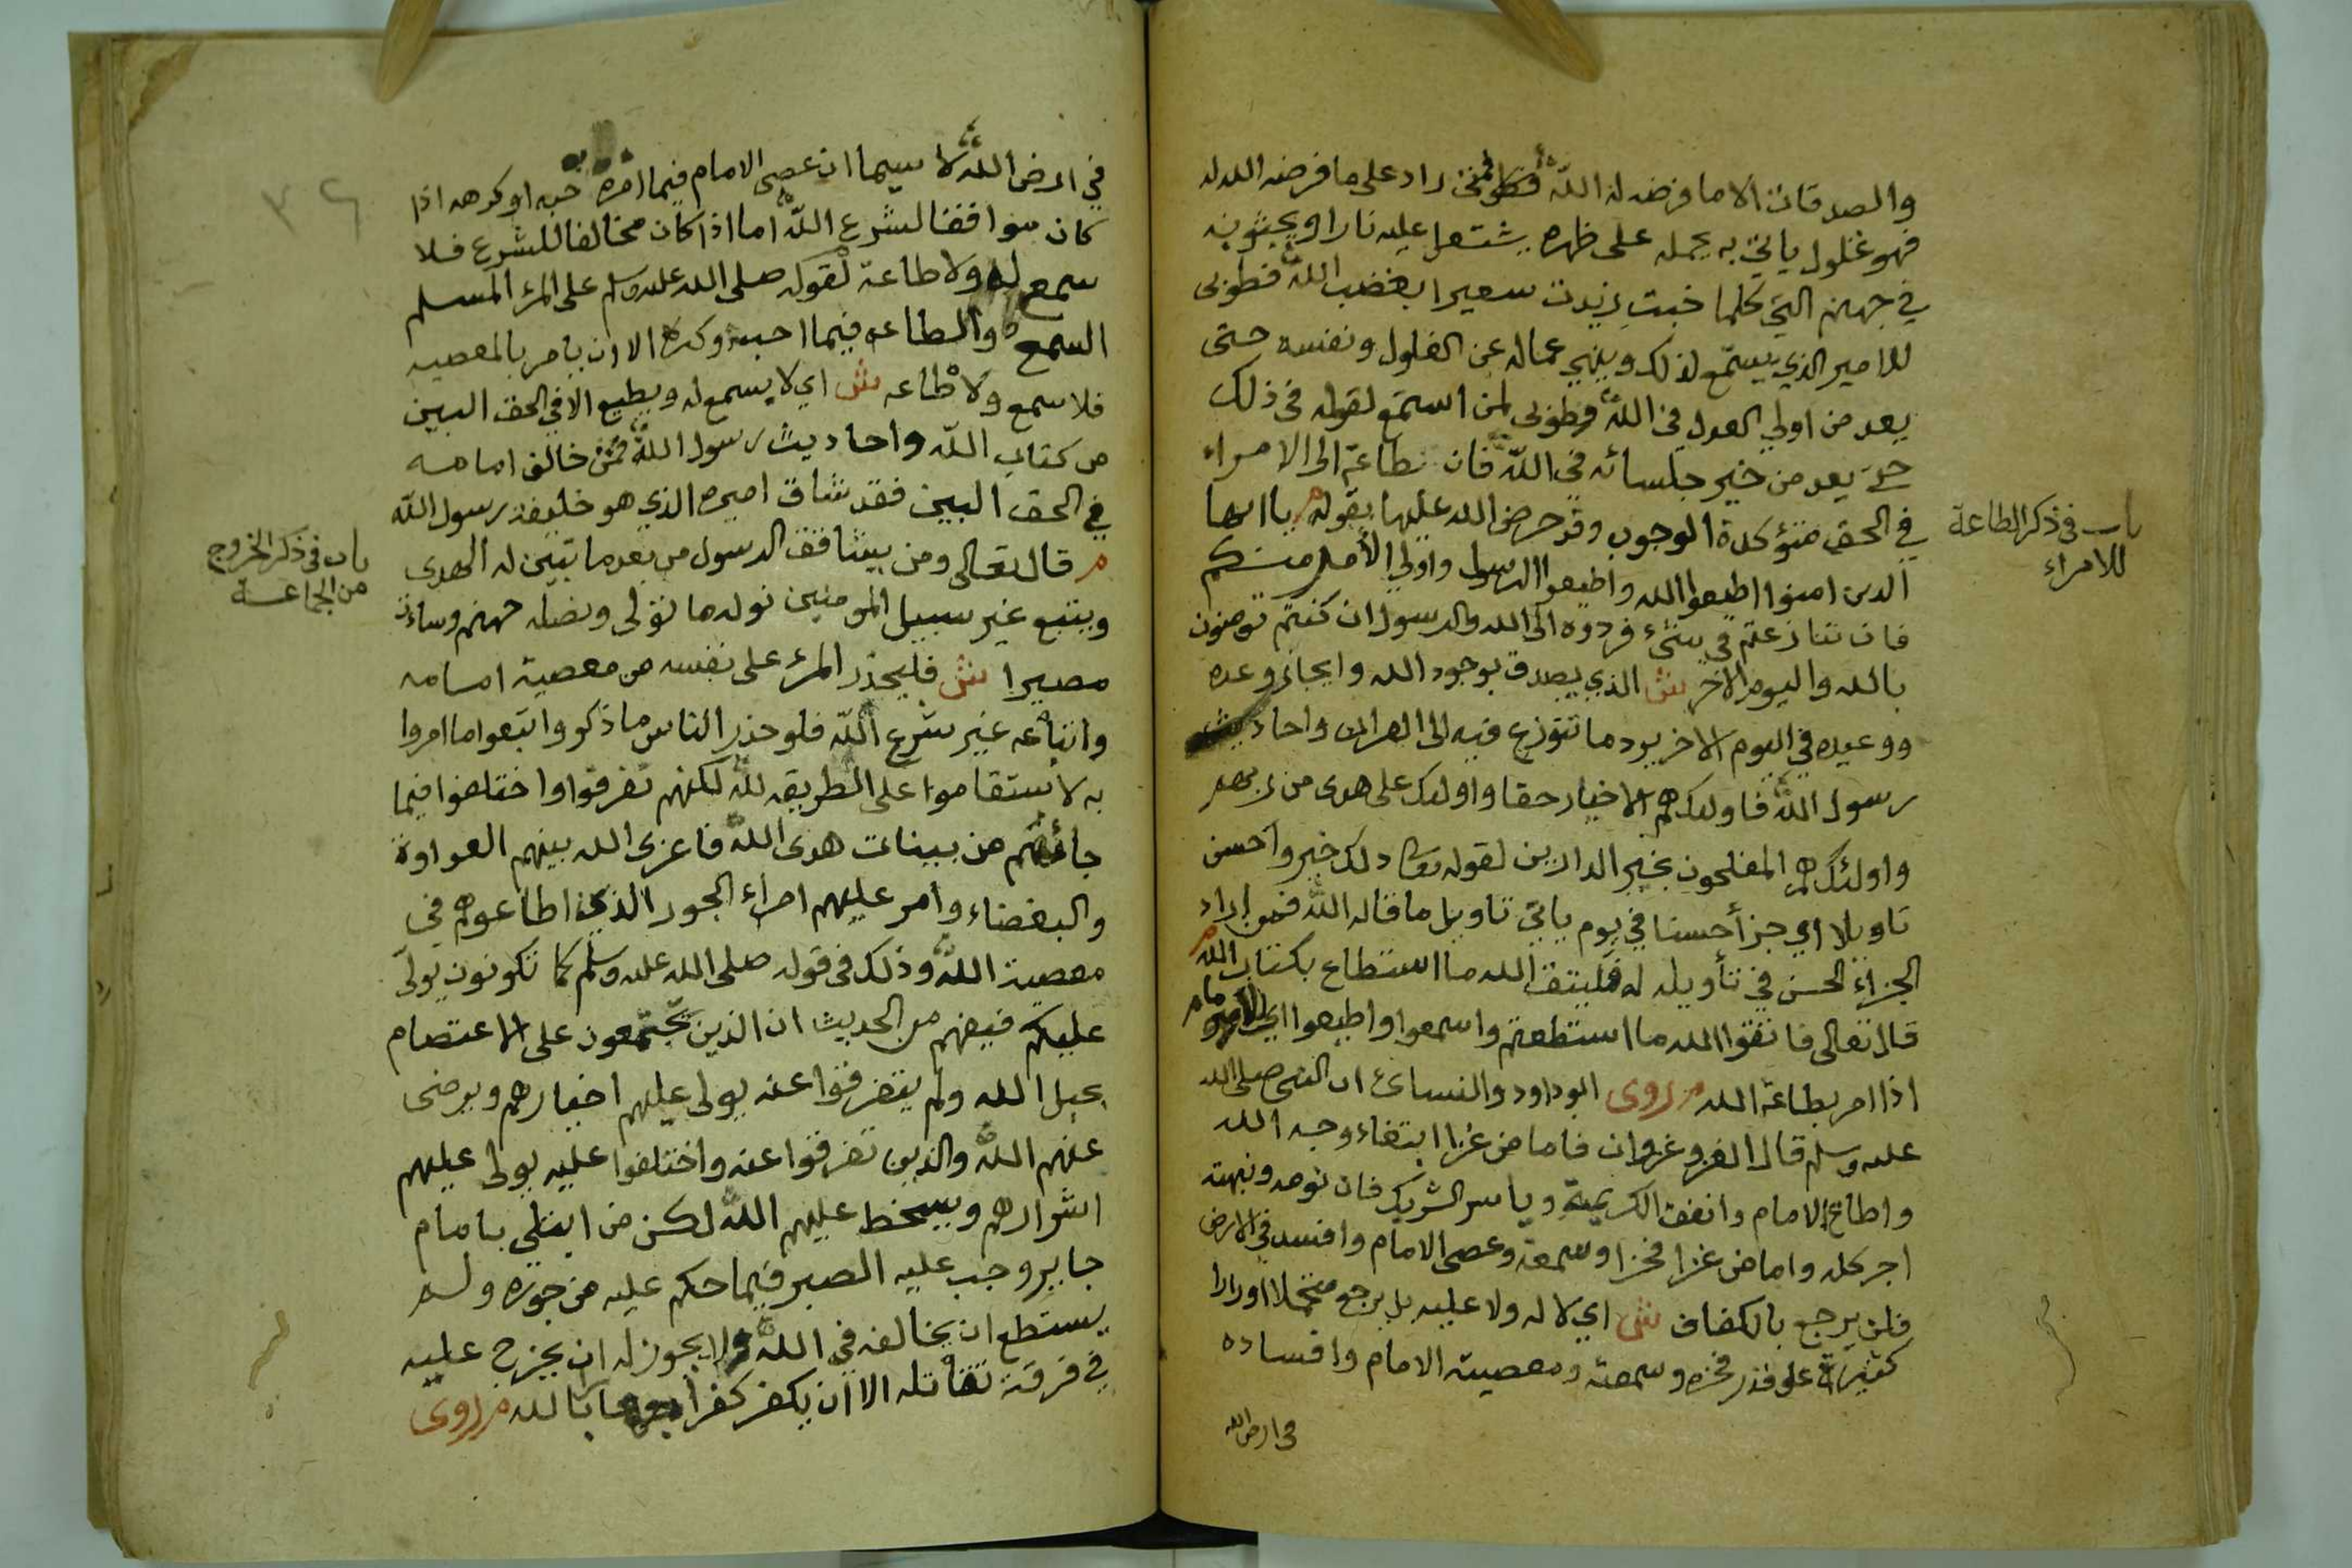 والصدقات الا ما فرضه له الله فمن زاد على ما فرضه الله له
فهو غلول ياتي به يحمله على ظهره يشتعل عليه نارا ويجثو به
في جهنم التي كلما خبت زيدت سعيرا بغضب الله فطوبى
للامير الذي يسمع لذلك وينهي عماله عن الغلول ونفسه حتى
يعد من اولي العدل في الله وطوبى لمن استمع لقوله في ذلك
حتى يعد من خير جلسائه في الله فان طاعة الى الامراء
باب في ذكر الطاعة
للامراء
في الحق متؤكدة الوجوب وقد حرض الله عليها بقوله م يا ايها
الذين امنوا اطيعوا الله واطيعوا الرسول واولي الأمر منكم
فان تنازعتم في شئ فردوه الى الله والرسول ان كنتم تومنون
بالله واليوم الاخر ش الذي يصدق بوجود الله وايجاز وعده
ووعيده في اليوم الاخر يرد ما تنوزع فيه الى القران واحاديث
رسول الله فاولئك هم الاخيار حقا واولئك على هدى من ربهم
واولئك هم المفلحون بخير الدارين لقوله تعالى ذلك خير واحسن
تاويلا اي جزأ حسنا في يوم ياتي تاويل ما قاله الله فمن اراد
الجزاء الحسن في تأويله له فليتق الله ما استطاع بكتاب الله م
قال تعالى فاتقوا الله ما استطعتم واسمعوا واطيعوا اي الامام
اذا امر بطاعة الله م روى ابو داود والنسائ ان النبي صلى الله
عليه وسلم قال الغزو غزوان فاما من غزا ابتغاء وجه الله
واطاع الامام وانفق الكريمة وياسر الشريك فان نومه ونبهته
اجر كله واما من غزا فخرا وسمعة وعصى الامام وافسد في الارض
فلن يرجع بالكفاف ش اي لا له ولا عليه بل يرجع متحملا اوزارا
كثيرة على قدر فخره وسمعته ومعصيته الامام وافساده
في ارض الله
في ارض الله لا سيما ان عصى الامام فيما امره به حبه او كرهه اذا
كان موافقا لشرع الله اما اذا كان مخالفا للشرع فلا
سمع له ولا طاعة لقوله صلى الله عليه وسلم على المرء المسلم
السمع والطاعه فيما احب وكره الا ان يامر بالمعصيه
فلا سمع ولا طاعه ش اي لا يسمع له ويطيع الا في الحق البين
من كتاب الله واحاديث رسول الله فمن خالف امامه
في الحق البين فقد شاق اميره الذي هو خليفة رسول الله
باب في ذكر الخروج
من الجماعة
م قال تعالى ومن يشاقق الرسول من بعد ما تبين له الهدى
ويتبع غير سبيل المومنين نوله ما تولى ونصله جهنم وساءت
مصيرا ش فليحذر المرء على نفسه من معصية امامه
واتباعه غير شرع الله فلو حذر الناس ما ذكر واتبعوا ما امروا
به لاستقاموا على الطريقه لله لكنهم تفرقوا واختلفوا فيما
جائهم من بينات هدى الله فاغرى الله بينهم العداوة
والبغضاء وامر عليهم امراء الجور الذين اطاعوهم في
معصية الله وذلك في قوله صلى الله عليه وسلم كما تكونون يولى
عليكم فيفهم من الحديث ان الذين يجتمعون على الاعتصام
بحبل الله ولم يتفرقوا عنه يولى عليهم اخيارهم ويرضى
عنهم الله والذين تفرقوا عنه واختلفوا عليه يولى عليهم
اشرارهم ويسخط عليهم الله لكن من ابتلي بامام
جاير وجب عليه الصبر فيما حكم عليه من جوره ولم
يستطع ان يخالفه في الله ولا يجوز له ان يخرج عليه
في فرقة تقاتله الا ان يكفر كفرا بالله م روى